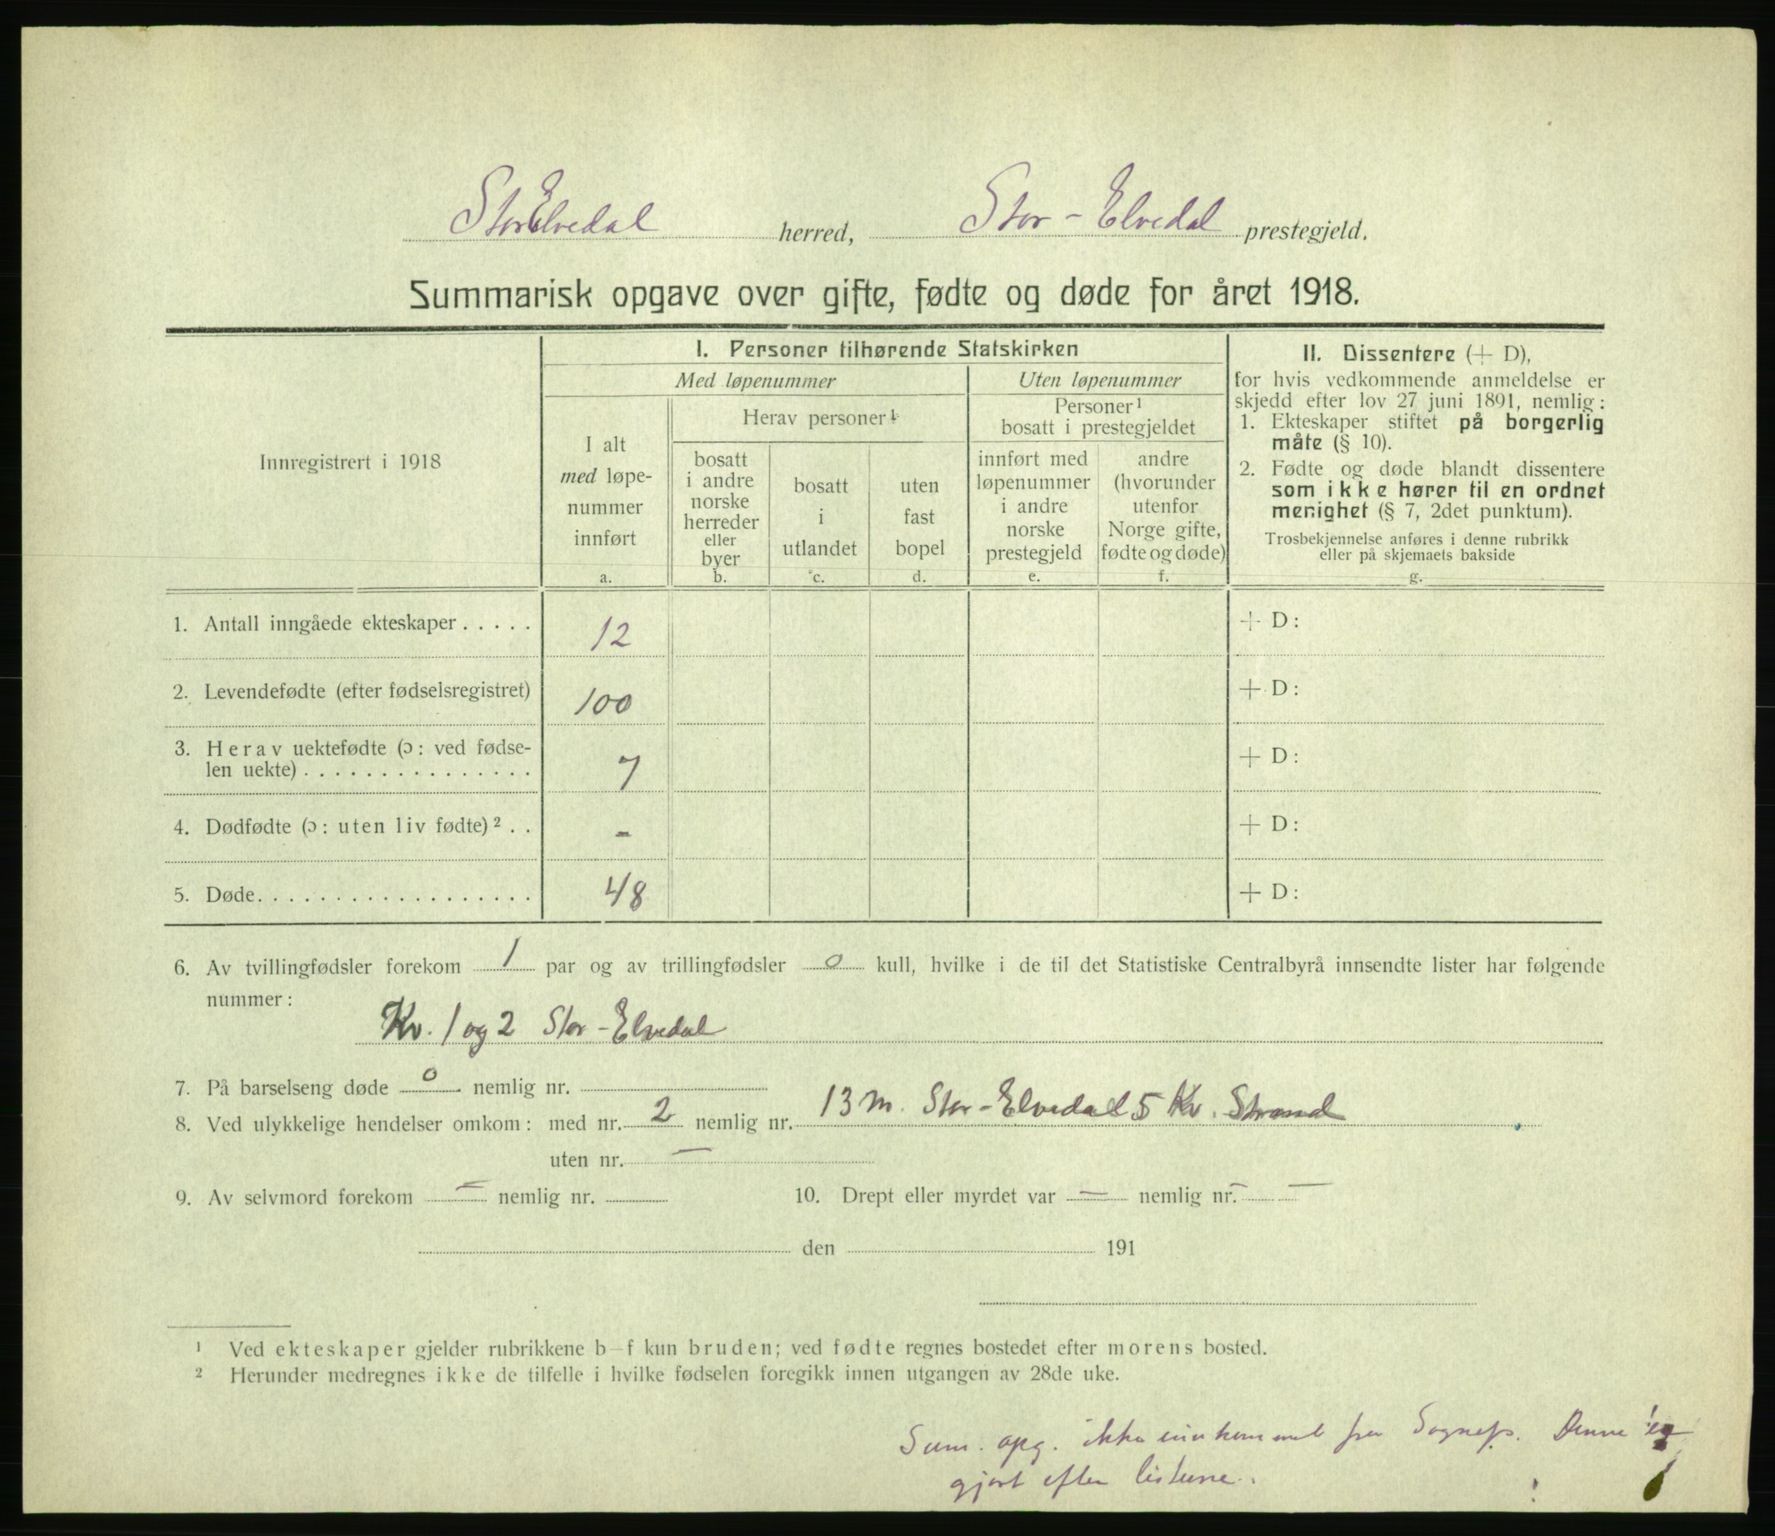 StorElvedal herred, Stor-Elvedal prestegjeld.
Summarisk opgave over gifte, fødte og døde for året 1918.
Innregistrert i 1918
I. Personer tilhørende Statskirken
Med løpenummer
Uten løpenummer
I alt
med løpe-
nummer
innført
a.
Herav personer¹
bosatt
i andre
norske
herreder
eller
byer
b.
bosatt
i
utlandet
c.
uten
fast
bopel
d.
Personer¹
bosatt i prestegjeldet
innført med
løpenummer
i andre
norske
prestegjeld
e.
andre
(hvorunder
utenfor
Norge gifte,
fødte og døde)
f.
II. Dissentere (+ D),
for hvis vedkommende anmeldelse er
skjedd efter lov 27 juni 1891, nemlig:
1. Ekteskaper stiftet på borgerlig
måte (§ 10).
2. Fødte og døde blandt dissentere
som ikke hører til en ordnet
menighet (§ 7, 2det punktum).
Trosbekjennelse anføres i denne rubrikk
eller på skjemaets bakside
g.
1. Antall inngåede ekteskaper..... 12 + D:
2. Levendefødte (efter fødselsregistret) 100 + D:
3. Herav uektefødte (ɔ: ved fødse-
len uekte)............... 7 + D:
4. Dødfødte (ɔ: uten liv fødte)².. - + D:
5. Døde.................. 48 + D:
6. Av tvillingfødsler forekom 1 par og av trillingfødsler 0 kull, hvilke i de til det Statistiske Centralbyrå innsendte lister har følgende
nummer:
Kv. 1 og 2 Stor-Elvedal
7. På barselseng døde 0 nemlig nr.
8. Ved ulykkelige hendelser omkom: med nr. 2 nemlig nr. 13 M. Stor-Elvedal 5 Kv. Strand
uten nr. —
9. Av selvmord forekom — nemlig nr. 10. Drept eller myrdet var — nemlig nr. —
den 191
¹ Ved ekteskaper gjelder rubrikkene b–f kun bruden; ved fødte regnes bostedet efter morens bosted.
² Herunder medregnes ikke de tilfelle i hvilke fødselen foregikk innen utgangen av 28de uke.
Sum. opg. ikke innkommet fra Sognepr. Denne er
gjort efter listene.